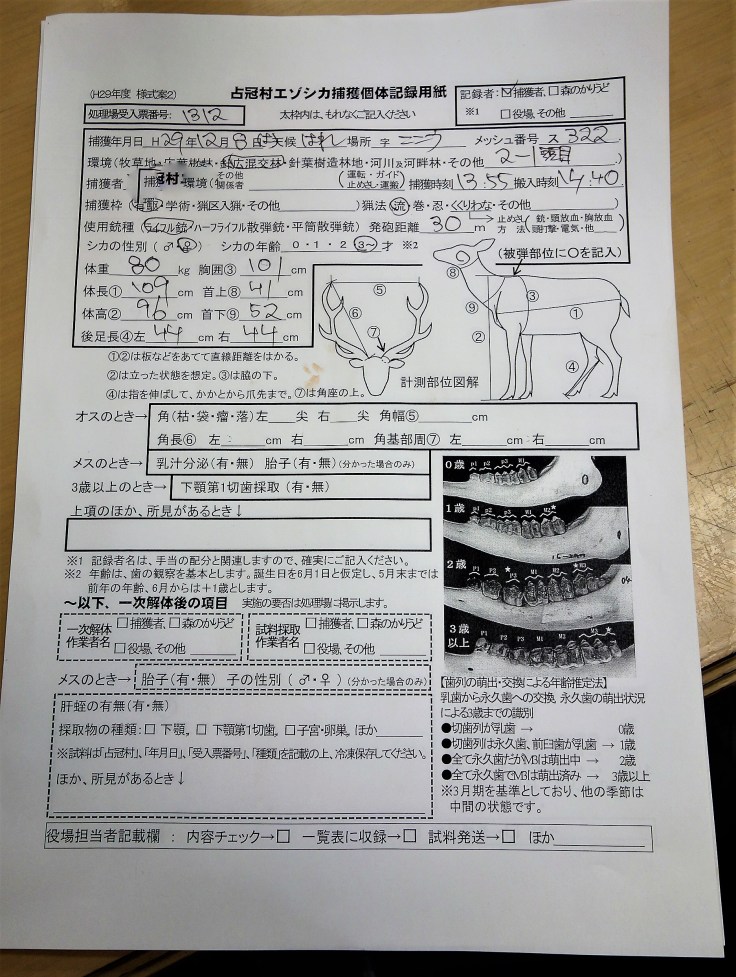 (H29年度 様式案2)
占冠村エゾシカ捕獲個体記録用紙
記録者:☑捕獲者, □森のかりうど
※1 □役場, その他
処理場受入票番号: 1312
太枠内は、もれなくご記入ください
捕獲年月日 H29年12月8日 天候 はれ 場所 字 ニニウ メッシュ番号 ス322
環境(牧草地・広葉樹林・針広混交林・針葉樹造林地・河川及河畔林・その他 2-1頭目 )
捕獲者 村 環境 (その他関係者 ) (運転・ガイド 止めさし・運搬) 捕獲時刻 13:55 搬入時刻 14:40
捕獲枠 (有害・学術・猟区入猟・その他 ) 猟法 (流)巻・忍・くくりわな・その他 )
使用銃種 (ライフル銃・ハーフライフル散弾銃・平筒散弾銃) 発砲距離 30 m 止めさし方法 (銃・頭放血・胸放血 頭打撃・電気・他 )
シカの性別 (♂・♀) シカの年齢 0・1・2・3~ 才 ※2
(被弾部位に○を記入)
体重 80 kg 胸囲③ 101 cm
体長① 109 cm 首上⑧ 41 cm
体高② 96 cm 首下⑨ 52 cm
後足長④左 44 cm 右 44 cm
⑤
⑥
⑦
⑧
③
⑨
①
②
④
①②は板などをあてて直線距離をはかる。
②は立った状態を想定。③は脇の下。
④は指を伸ばして、かかとから爪先まで。⑦は角座の上。
計測部位図解
オスのとき→ 角(枯・袋・瘤・落)左 尖 右 尖 角幅⑤ cm
角長⑥ 左 cm 右 cm 角基部周⑦ 左 cm 右 cm
メスのとき→ 乳汁分泌(有・無) 胎子(有・無)(分かった場合のみ)
3歳以上のとき→ 下顎第1切歯採取 (有・無)
上項のほか、所見があるとき↓
※1 記録者名は、手当の配分と関連しますので、確実にご記入ください。
※2 年齢は、歯の観察を基本とします。誕生日を6月1日と仮定し、5月末までは
前年の年齢、6月からは+1歳とします。
~以下、一次解体後の項目 実施の要否は処理場に掲示します。
一次解体作業者名 □捕獲者, □森のかりうど □役場, その他
試料採取作業者名 □捕獲者, □森のかりうど □役場, その他
メスのとき→ 胎子(有・無) 子の性別 (♂・♀) (分かった場合のみ)
肝蛭の有無(有・無)
採取物の種類:□ 下顎, □ 下顎第1切歯, □子宮・卵巣, ほか
※試料は「占冠村」、「年月日」、「受入票番号」、「種類」を記載の上、冷凍保存してください。
ほか、所見があるとき↓
0歳 P1 P2 P3 M1
1歳
2歳
3歳以上
【歯列の萌出・交換による年齢推定法】
乳歯から永久歯への交換, 永久歯の萌出状況
による3歳までの識別
●切歯列が乳歯 → 0歳
●切歯列は永久歯、前臼歯が乳歯 → 1歳
●全て永久歯だがM3は萌出中 → 2歳
●全て永久歯でM3は萌出済み → 3歳以上
※3月期を基準としており、他の季節は
中間の状態です。
役場担当者記載欄 : 内容チェック→□ 一覧表に収録→□ 試料発送→□ ほか